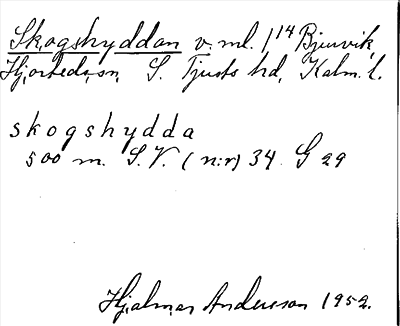 Skogshyddan v. ml. 1/14 Bjurvik,
Hjorteds sn, S. Tjusts hd, Kalm. l.
skogshydda
500 m. S.V. (n:r) 34 G 29
Hjalmar Andersson 1952.